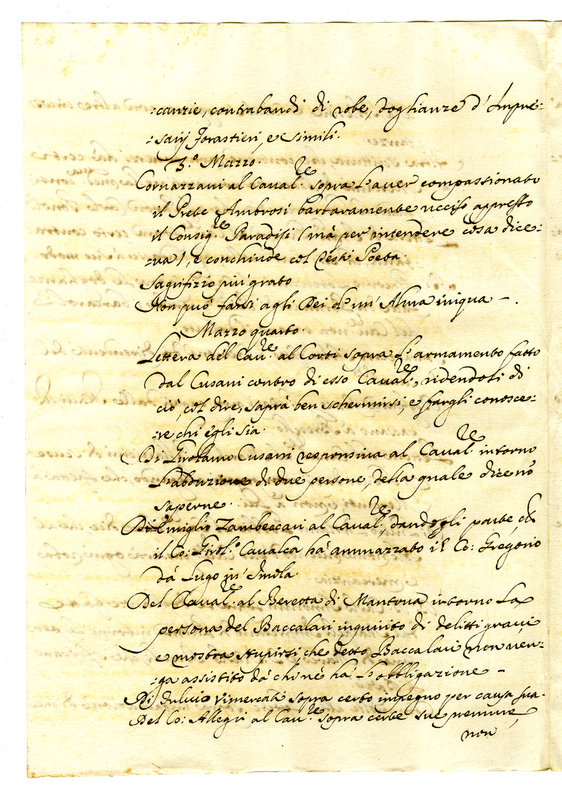 :canzie, contrabandi di robe, doglianze d'Impre:
:sarij forastieri, e simili.
3.º Marzo.
Cornazzani al Caval.re sopra l'aver compassionato
il Prete Ambrosi barbaramente ucciso appresso
il Consig.re Paradisi (mà per intendere cosa dice:
:va), e conchiude col Poeta
Sagrifizio più grato
Non può farsi agli Dei d'un'Alma iniqua -.
Marzo quarto.
Lettera del Cav.re al Corti sopra l'armamento fatto
dal Cusani contro di esso Caval.re, ridendosi di
ciò, col dire, saprà ben schermirsi, e fargli conosce:
:re chi egli sia.
Di Girolamo Cusani responsiva al Caval.re intorno
l'abduzione di due persone, della quale dice nõ
saperne.
Di Camiglio Zambeccari al Caval.re, dandogli parte che
il Co: Girol.o Cavalca hà ammazzato il Co: Gregorio
dà Lugo in Imola.
Del Caval.re al Beretta di Mantova intorno la
persona del Baccalari inquisito di delitti gravi
e mostra stupirsi, che detto Baccalari non ven:
:ga assistito dà chi nè hà l'obbligazione -
Di Fulvio Vimercati sopra certo impegno per causa sua.
Del Co: Alegri al Cav.re sopra certe sue premure,
non